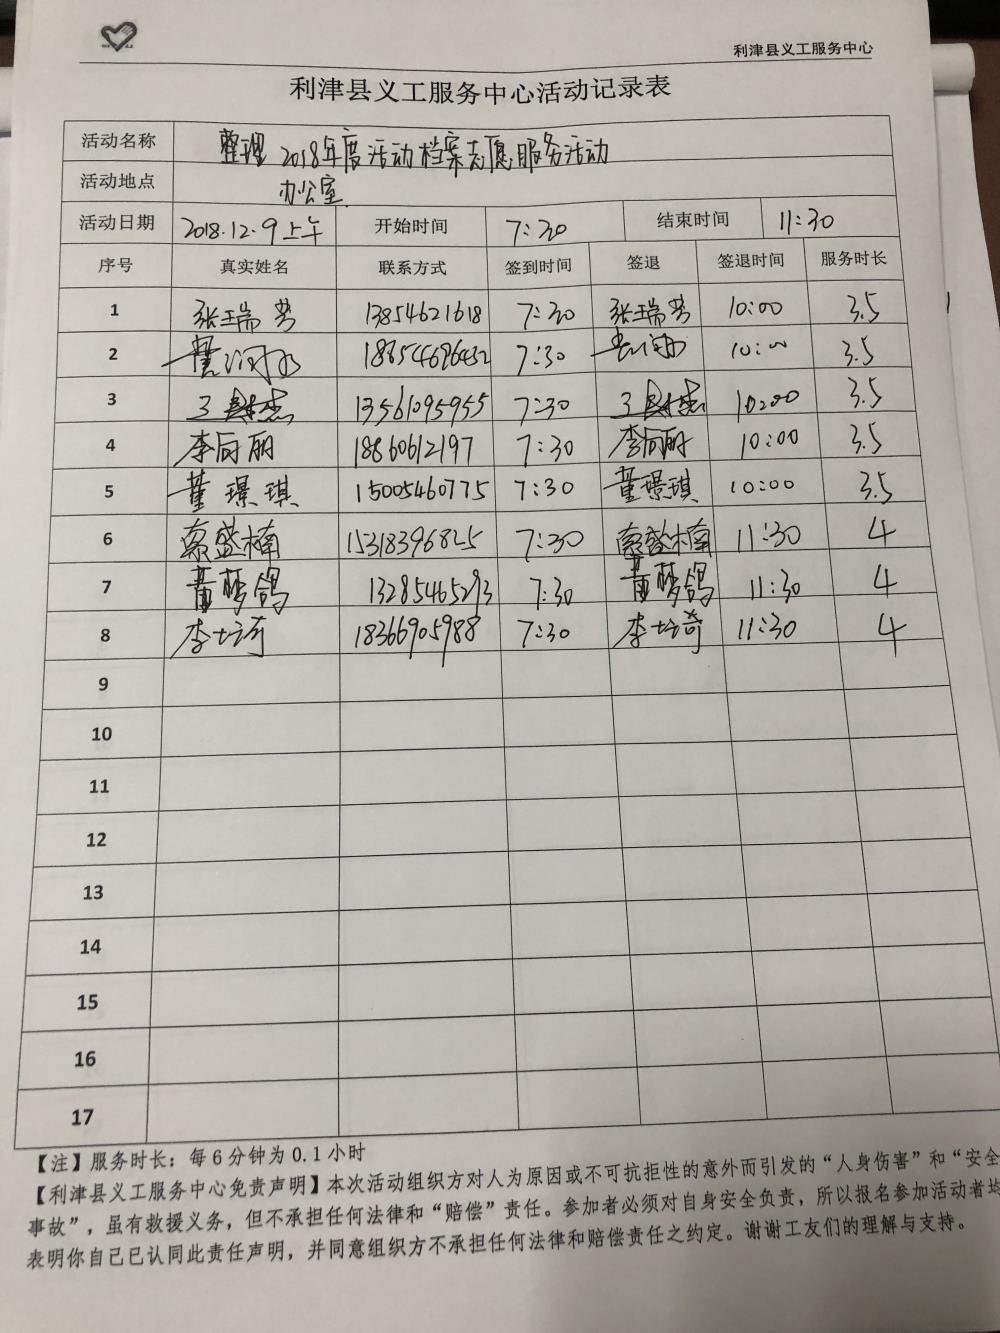 利津县义工服务中心
利津县义工服务中心活动记录表
活动名称 整理2018年度活动档案志愿服务活动
活动地点 办公室
活动日期 2018.12.9上午 开始时间 7:30 结束时间 11:30
序号 真实姓名 联系方式 签到时间 签退 签退时间 服务时长
1 张瑞芳 13854621618 7:30 张瑞芳 10:00 3.5
2 18854696432 7:30 10:00 3.5
3 13561095955 7:30 10:00 3.5
4 李向丽 18860612197 7:30 李向丽 10:00 3.5
5 董璟琪 15005460775 7:30 董璟琪 10:00 3.5
6 15318396825 7:30 11:30 4
7 董梦鸽 13285465293 7:30 董梦鸽 11:30 4
8 李培奇 18366905988 7:30 李培奇 11:30 4
9
10
11
12
13
14
15
16
17
【注】服务时长：每6分钟为0.1小时
【利津县义工服务中心免责声明】本次活动组织方对人为原因或不可抗拒性的意外而引发的“人身伤害”和“安全
事故”，虽有救援义务，但不承担任何法律和“赔偿”责任。参加者必须对自身安全负责，所以报名参加活动者均
表明你自己已认同此责任声明，并同意组织方不承担任何法律和赔偿责任之约定。谢谢工友们的理解与支持。